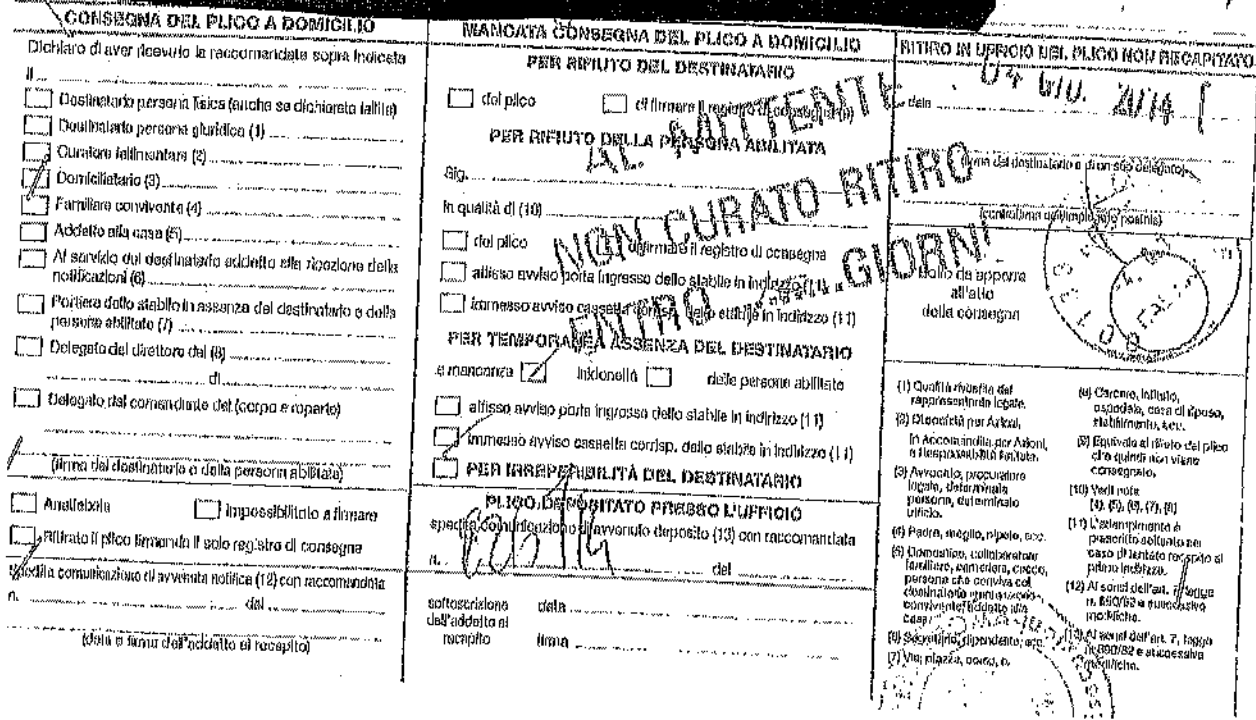 CONSEGNA DEL PLICO A DOMICILIO
Dichiaro di aver ricevuto la raccomandata sopra indicata
il
Destinatario persona fisica (anche se dichiarata fallita)
Destinatario persona giuridica (1)
Curatore fallimentare (2)
Domiciliatario (3)
Familiare convivente (4)
Addetto alla casa (5)
Al servizio del destinatario addetto alla ricezione delle
notificazioni (6)
Portiere dello stabile in assenza del destinatario e delle
persone abilitate (7)
Delegato del direttore del (8)
di
Delegato del comandante del (corpo e reparto)
(firma del destinatario o della persona abilitata)
Analfabeta
Impossibilitato a firmare
Ritirato il plico firmando il solo registro di consegna
Spedita comunicazione di avvenuta notifica (12) con raccomandata
n. del
(data e firma dell'addetto al recapito)
MANCATA CONSEGNA DEL PLICO A DOMICILIO
PER RIFIUTO DEL DESTINATARIO
del plico
di firmare il registro di consegna (9)
PER RIFIUTO DELLA PERSONA ABILITATA
Sig.
In qualità di (10)
del plico
di firmare il registro di consegna
affisso avviso porta ingresso dello stabile in indirizzo (11)
immesso avviso cassetta corrisp. dello stabile in indirizzo (11)
PER TEMPORANEA ASSENZA DEL DESTINATARIO
e mancanza
inidoneità
delle persone abilitate
affisso avviso porta ingresso dello stabile in indirizzo (11)
immesso avviso cassetta corrisp. dello stabile in indirizzo (11)
PER IRREPERIBILITÀ DEL DESTINATARIO
PLICO DEPOSITATO PRESSO L'UFFICIO
spedita comunicazione di avvenuto deposito (13) con raccomandata
n. del
sottoscrizione
dell'addetto al
recapito
data
firma
AL MITTENTE
NON CURATO RITIRO
ENTRO GIORNI
RITIRO IN UFFICIO DEL PLICO NON RECAPITATO
data
04 GIU. 2014
(firma del destinatario o di un suo delegato)
(controfirma dell'impiegato postale)
Bollo da apporre
all'atto
della consegna
(1) Qualità rivestita dal
rappresentante legale.
(2) Di società per Azioni,
in Accomandita per Azioni,
a Responsabilità limitata.
(3) Avvocato, procuratore
legale, determinata
persona, determinato
ufficio.
(4) Padre, moglie, nipote, ecc.
(5) Domestico, collaboratore
familiare, cameriera, cuoco,
persona che conviva col
destinatario
casa
(6) Segretario, dipendente, ecc.
(7) Via, piazza, corso, n.
(8) Carcere, istituto,
ospedale, casa di riposo,
stabilimento, ecc.
(9) Equivale al rifiuto del plico
che quindi non viene
consegnato.
(10) Vedi note
(4), (5), (6), (7), (8)
(11) L'adempimento è
prescritto soltanto nel
caso di tentato recapito al
primo indirizzo.
(12) Ai sensi dell'art. 7, legge
n. 890/82 e successive
modifiche.
(13) Ai sensi dell'art. 7, legge
n. 890/82 e successive
modifiche.